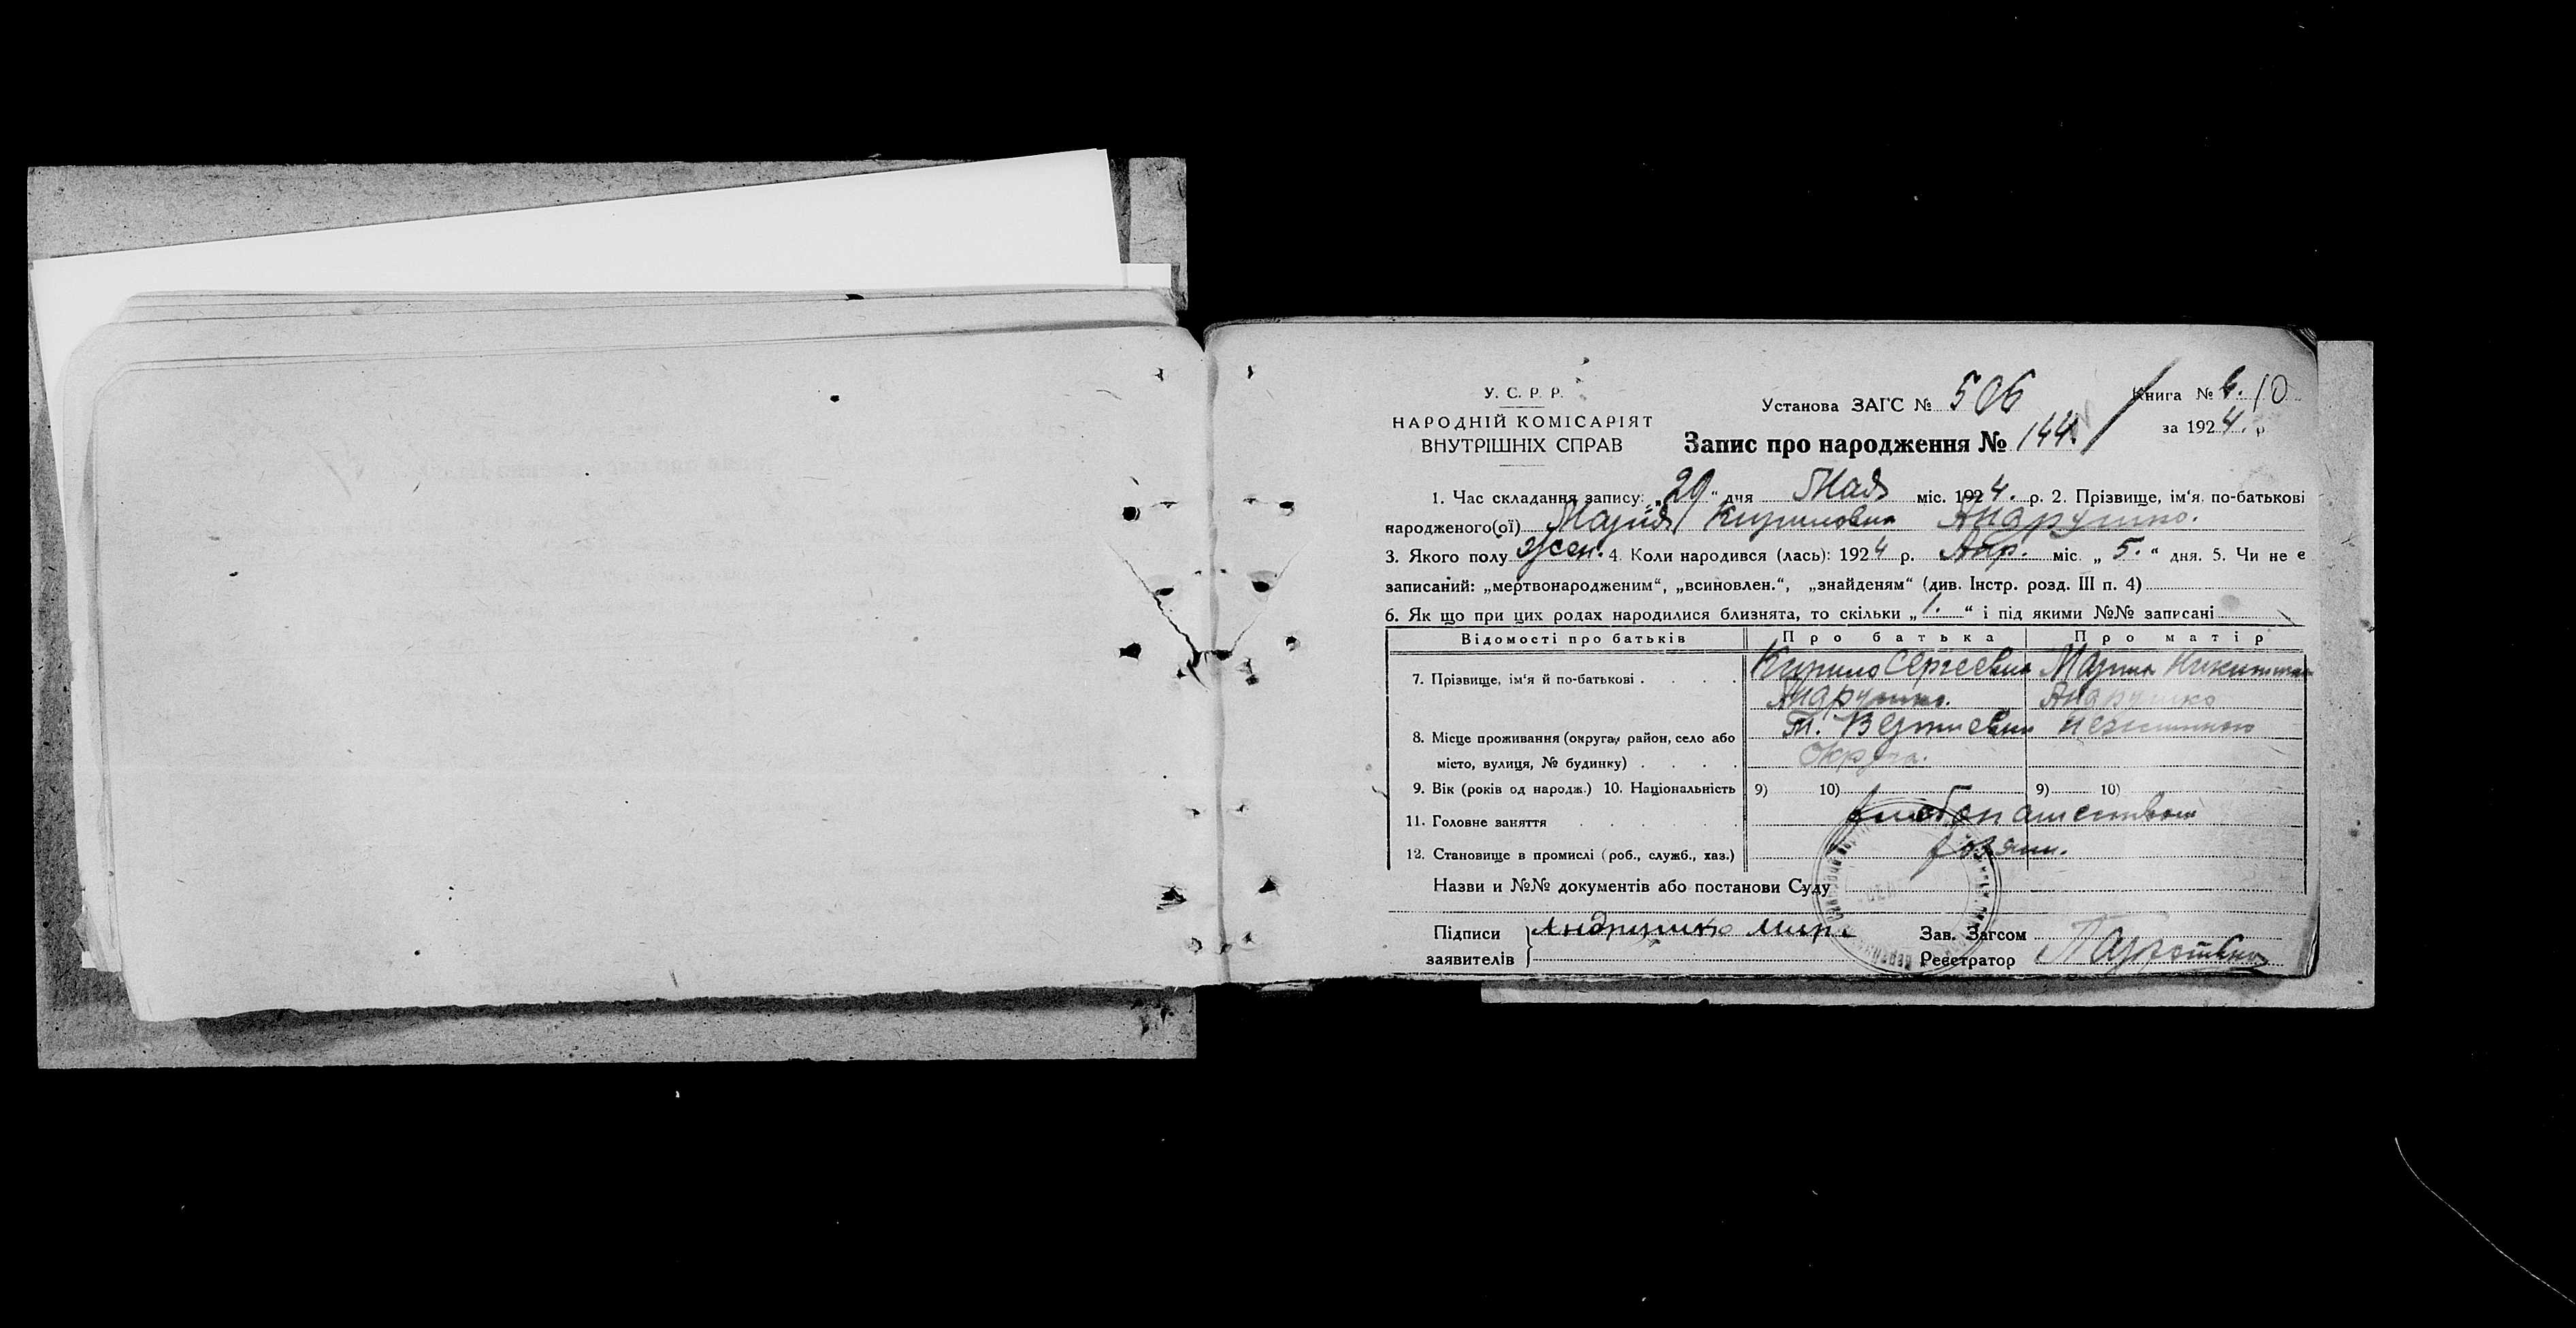 У. С. Р. Р.
НАРОДНІЙ КОМІСАРІЯТ
ВНУТРІШНІХ СПРАВ
Установа ЗАГС № 506
Книга № 6. 10
за 1924. р.
Запис про народження № 144.
1. Час складання запису: „29“ дня Мая міс. 1924. р. 2. Прізвище, ім'я, по-батькові
народженого(ої) Марія Кириловна Андрушко.
3. Якого полу жен. 4. Коли народився (лась): 1924 р. Апр. міс. „5.“ дня. 5. Чи не є
записаний: „мертвонародженим“, „всиновлен.“, „знайденям“ (див. Інстр. розд. III п. 4)
6. Як що при цих родах народилися близнята, то скільки „1.“ і під якими №№ записані
Відомості про батьків Про батька Про матір
7. Прізвище, ім'я й по-батькові Кирило Сергеевич Мария
Андрушко. Андрушко
8. Місце проживання (округа, район, село або м. Вертиевки
місто, вулиця, № будинку) Округа.
9. Вік (років од народж.) 10. Національність 9) 10) 9) 10)
11. Головне заняття хлебопашество
12. Становище в промислі (роб., служб., хаз.) хозяин.
Назви и №№ документів або постанови Суду
Підписи Андрушко
заявителів
Зав. Загсом
Реєстратор